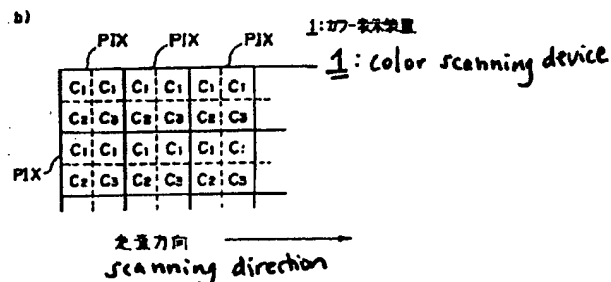 b)
PIX PIX PIX
1:カラー表示装置
1: color scanning device
C1 C1 C1 C1 C1 C1
C2 C3 C2 C3 C2 C3
C1 C1 C1 C1 C1
PIX
C2 C3 C2 C3 C2 C3
走査方向
scanning direction